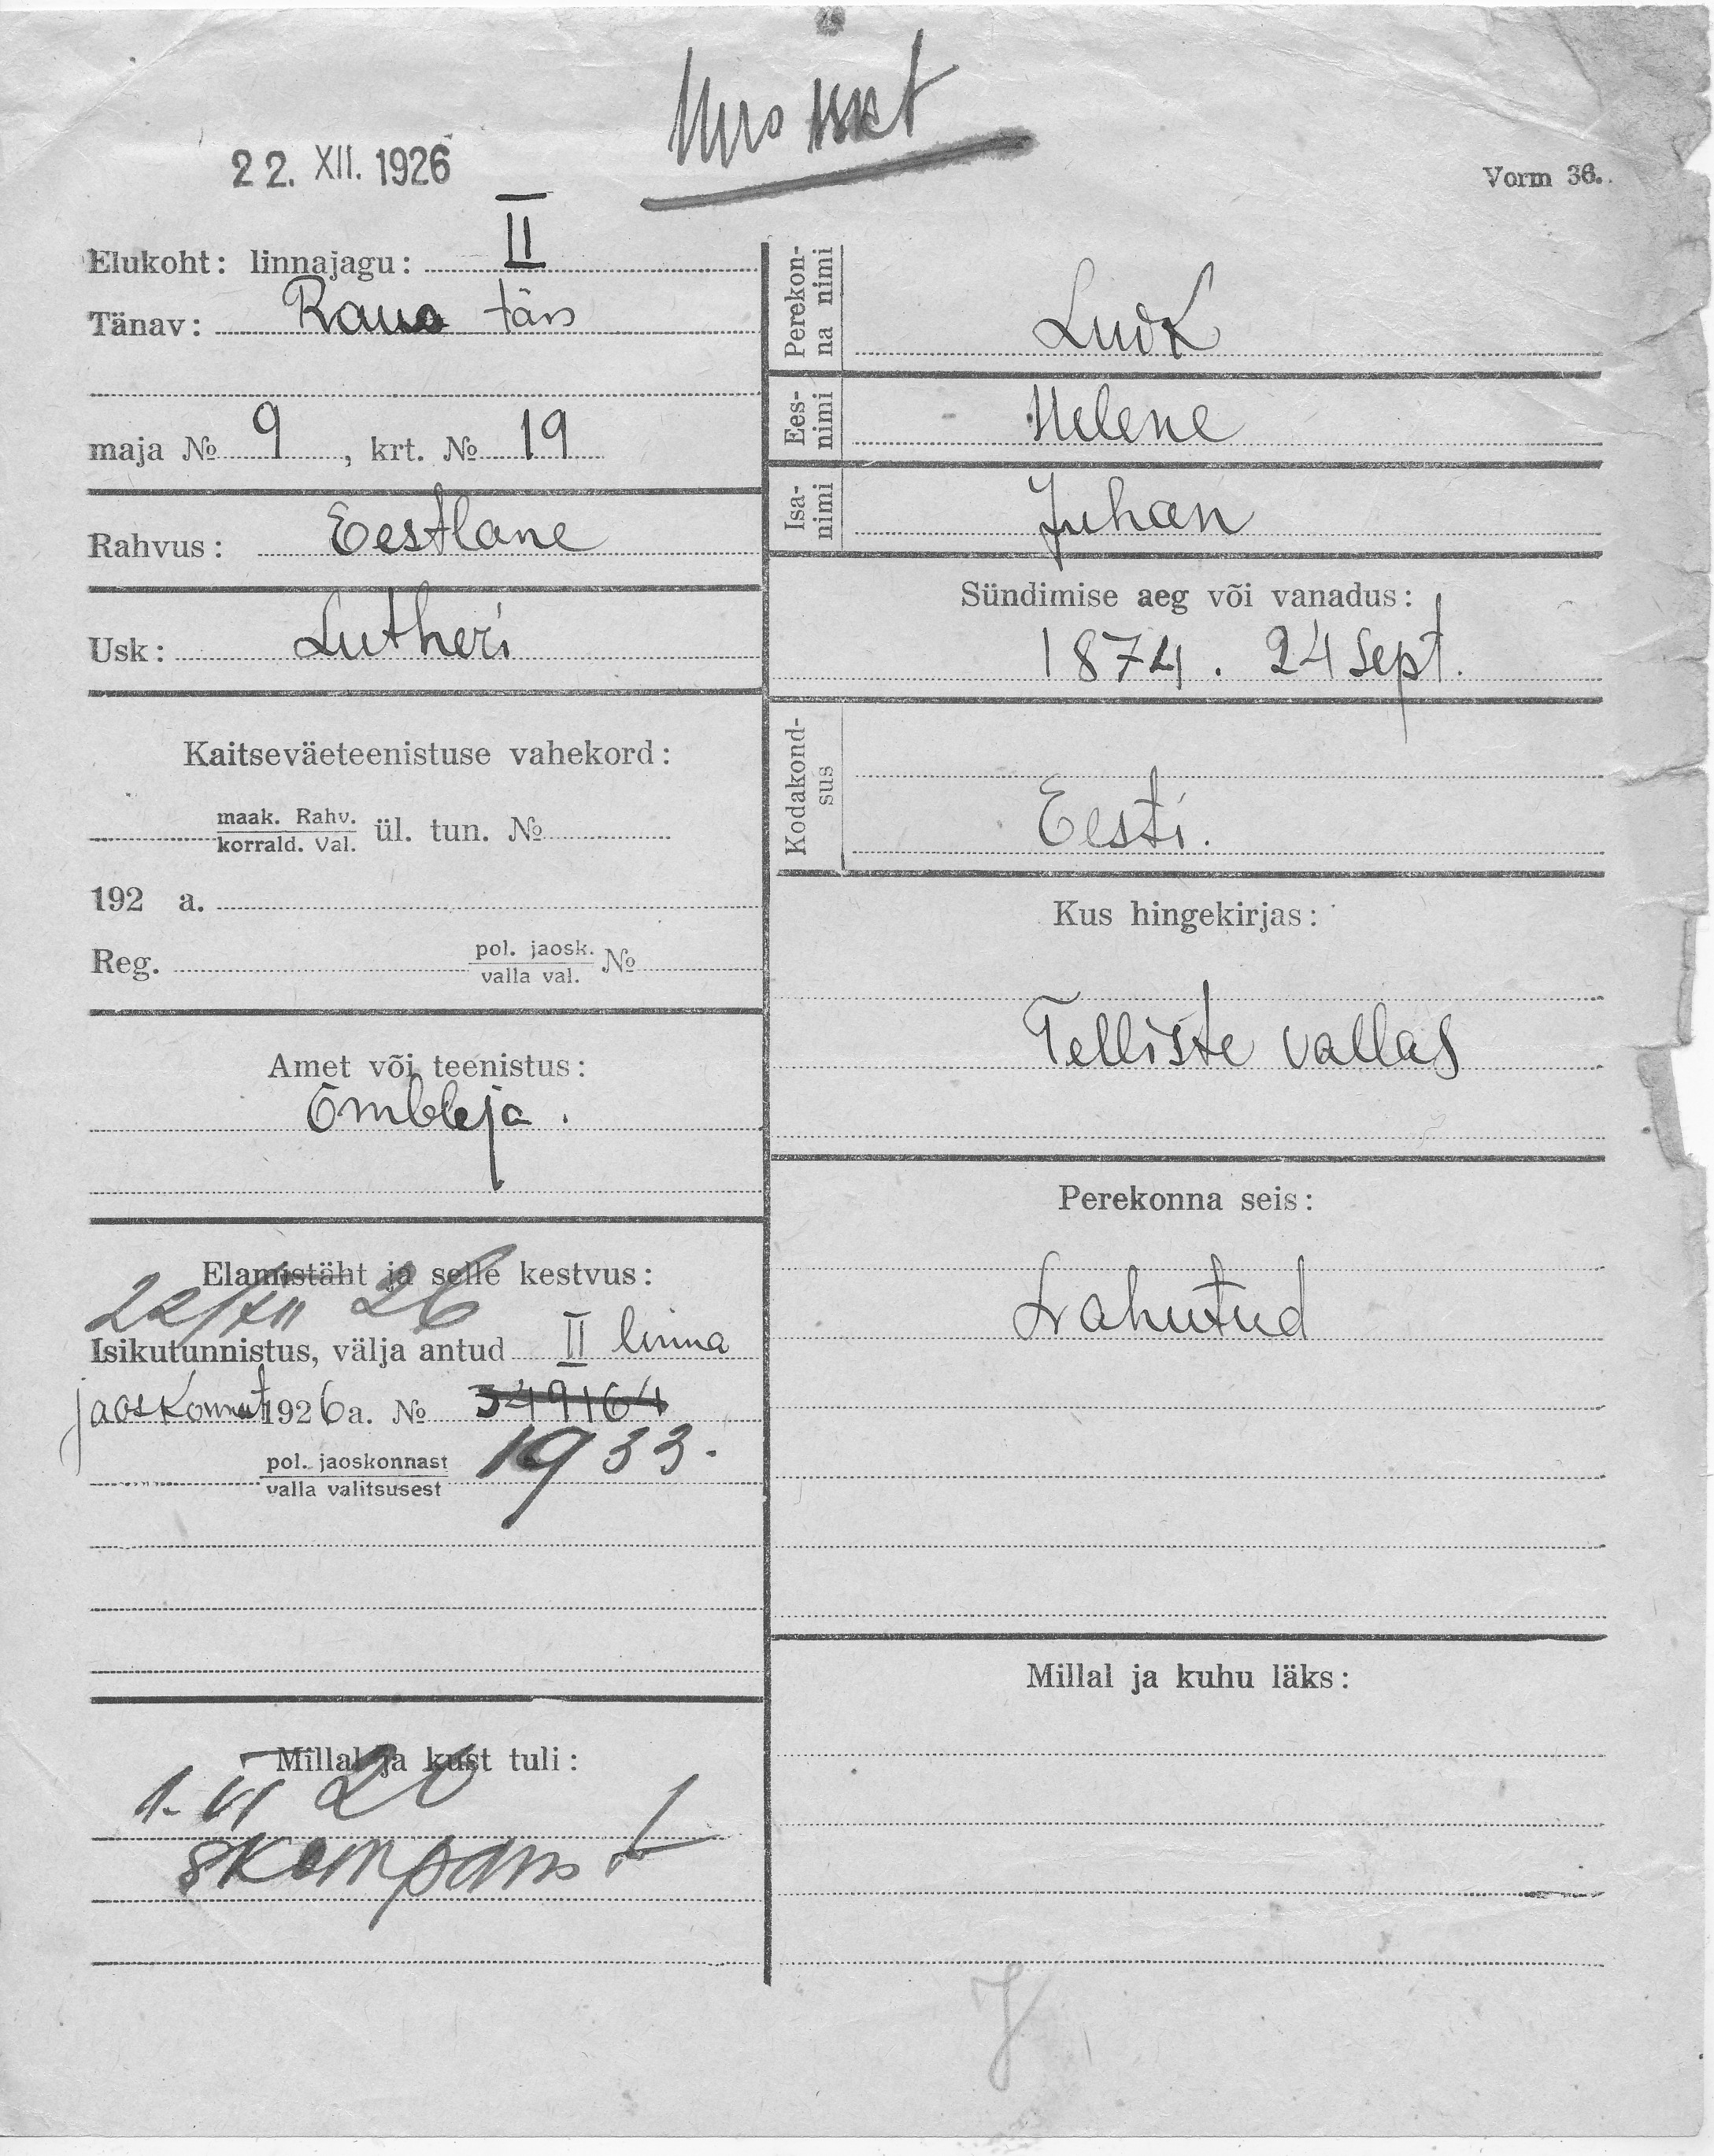 22. XII. 1926
Vorm 36.
Elukoht: linnajagu: II
Tänav: Raua tän
maja № 9, krt. № 19
Rahvus: Eestlane
Usk: Lutheri
Kaitseväeteenistuse vahekord:
maak. Rahv.
korrald. Val. ül. tun. №
192 a.
Reg. pol. jaosk. №
valla val.
Amet või teenistus:
Õmbleja.
Elamistäht ja selle kestvus:
22/XII 26
Isikutunnistus, välja antud II linna
jaoskonnat 1926 a. № 349164
pol. jaoskonnast 1933.
valla valitsusest
Millal ja kust tuli:
1. VI 20
Perekon-
na nimi
Luok
Ees-
nimi
Helene
Isa-
nimi
Juhan
Sündimise aeg või vanadus:
1874. 24 Sept.
Kodakond-
sus
Eesti.
Kus hingekirjas:
Telliste vallas
Perekonna seis:
Lahutud
Millal ja kuhu läks: